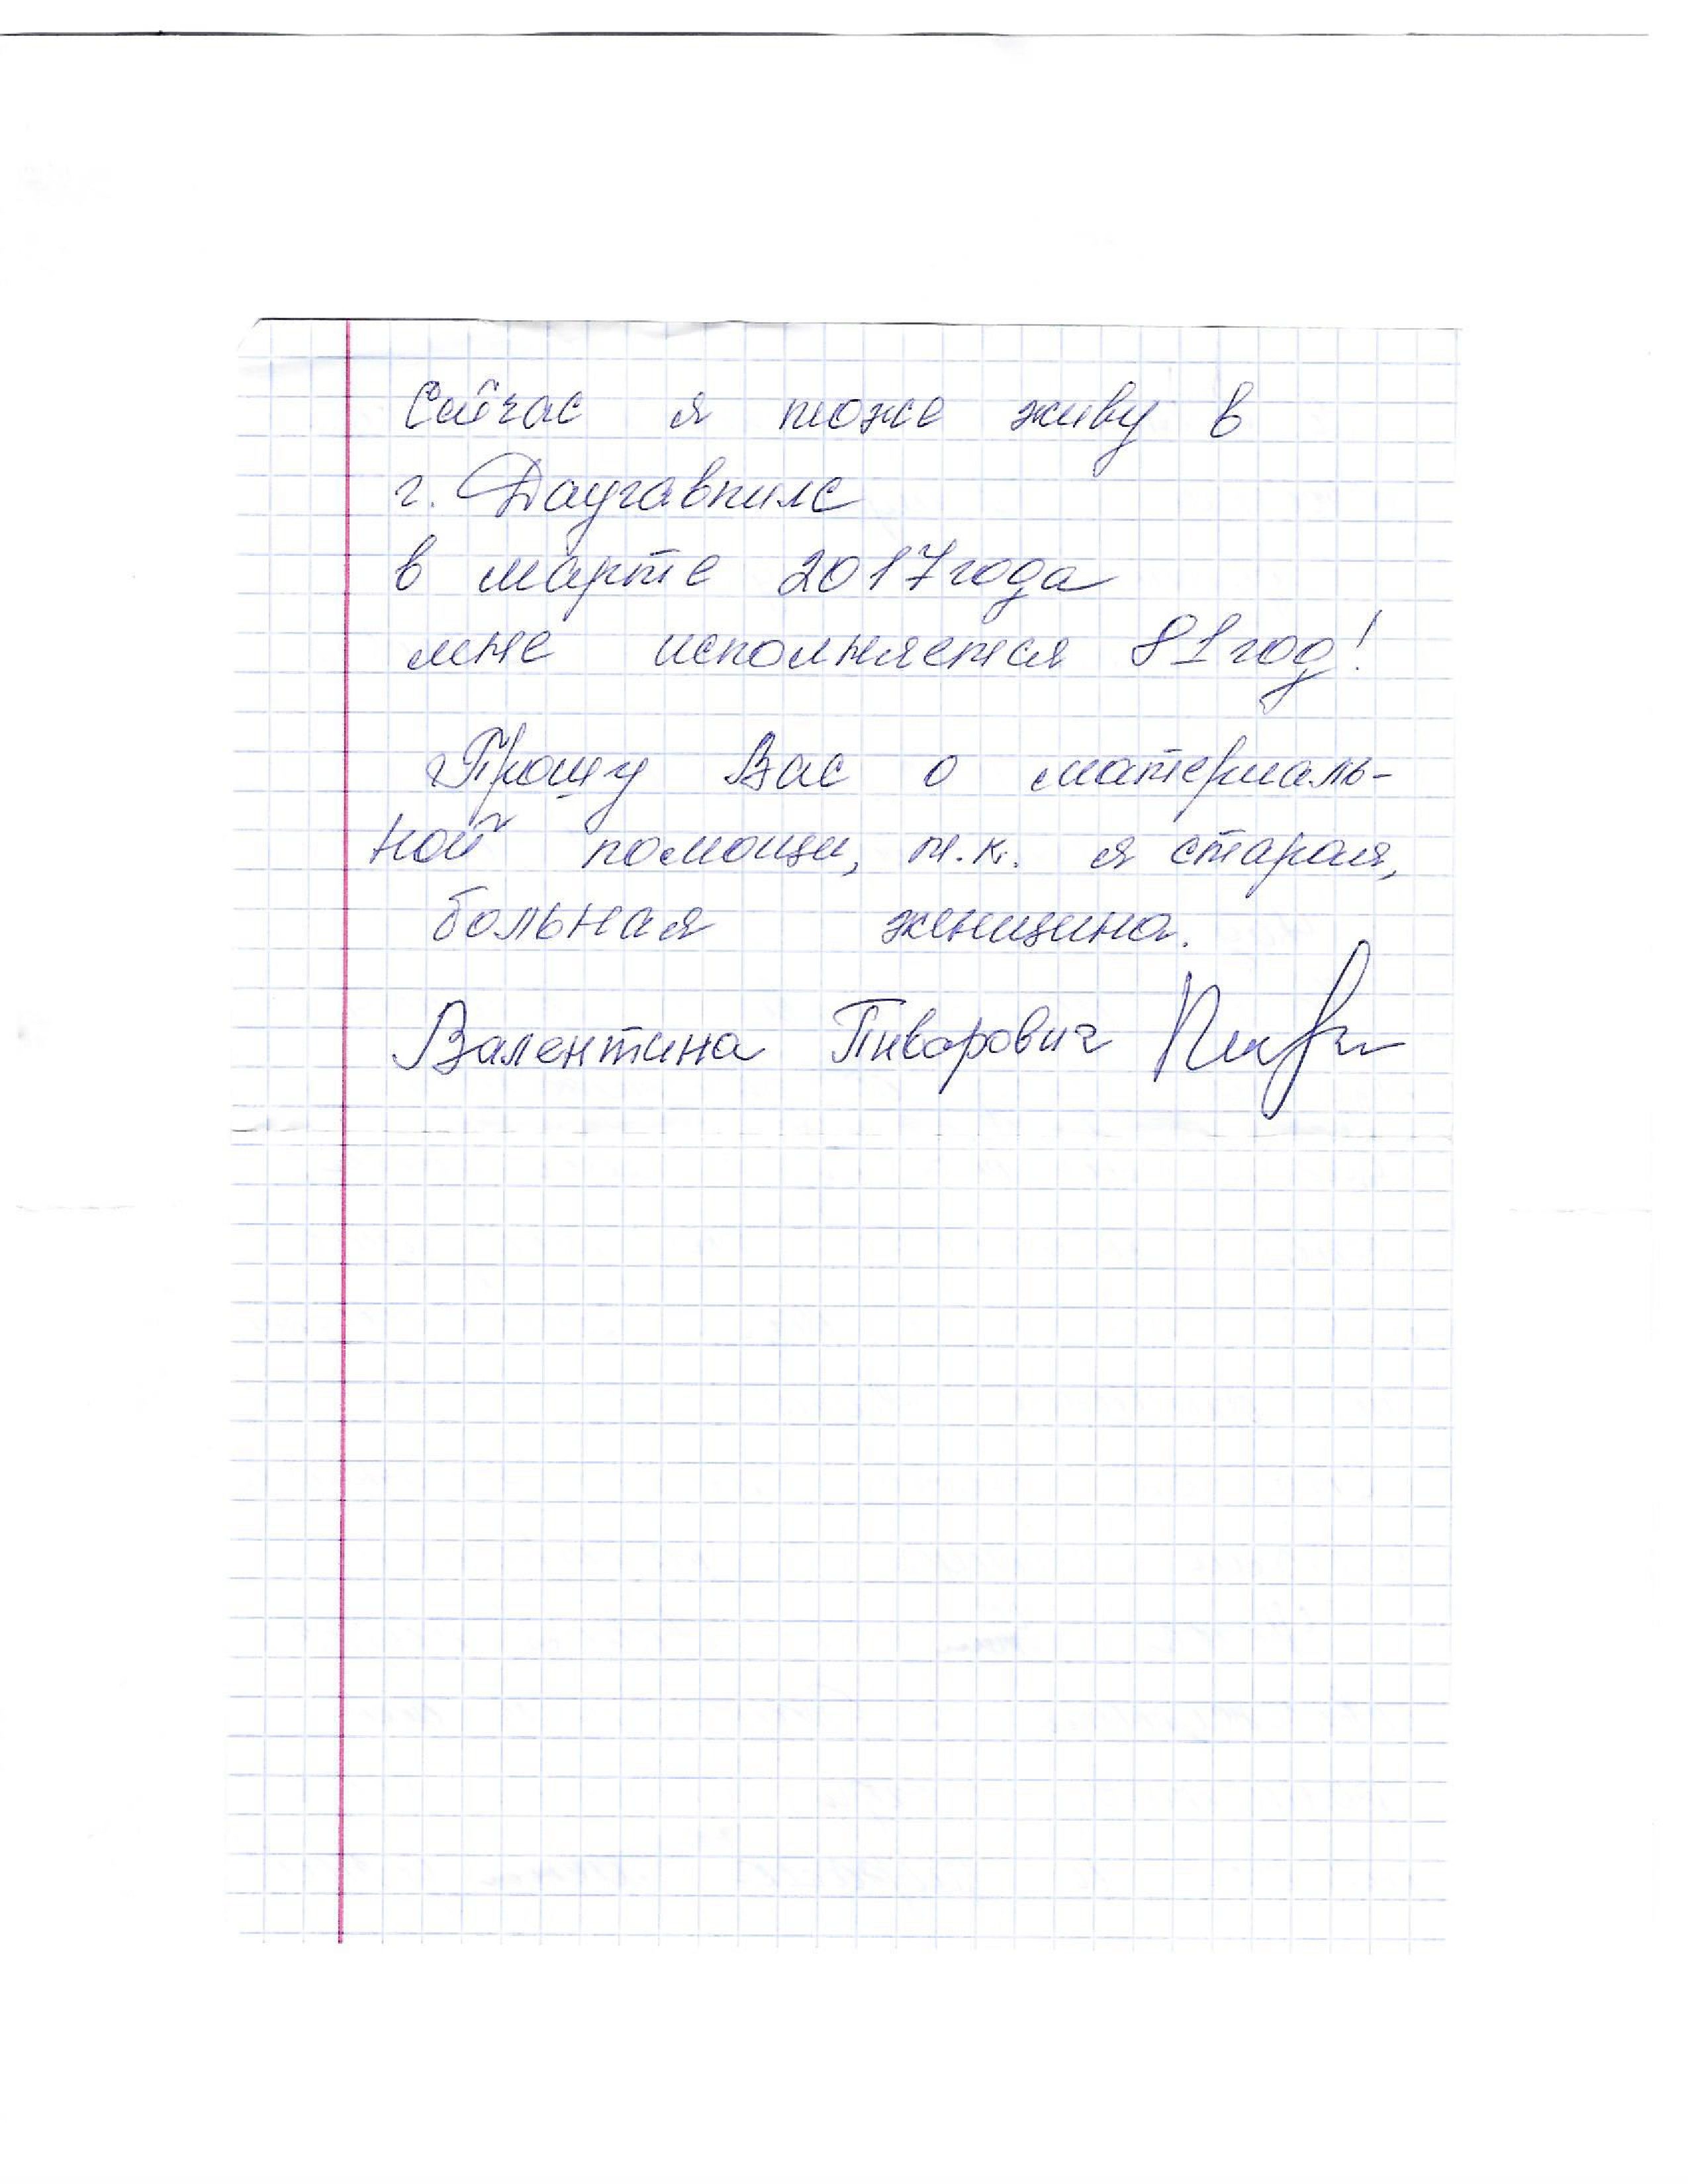 Сейчас я тоже живу в
г. Даугавпилс
в марте 2017 года
мне исполняется 81 год!
Прошу Вас о материаль-
ной помощи, т.к. я старая,
больная женщина.
Валентина Пиварович